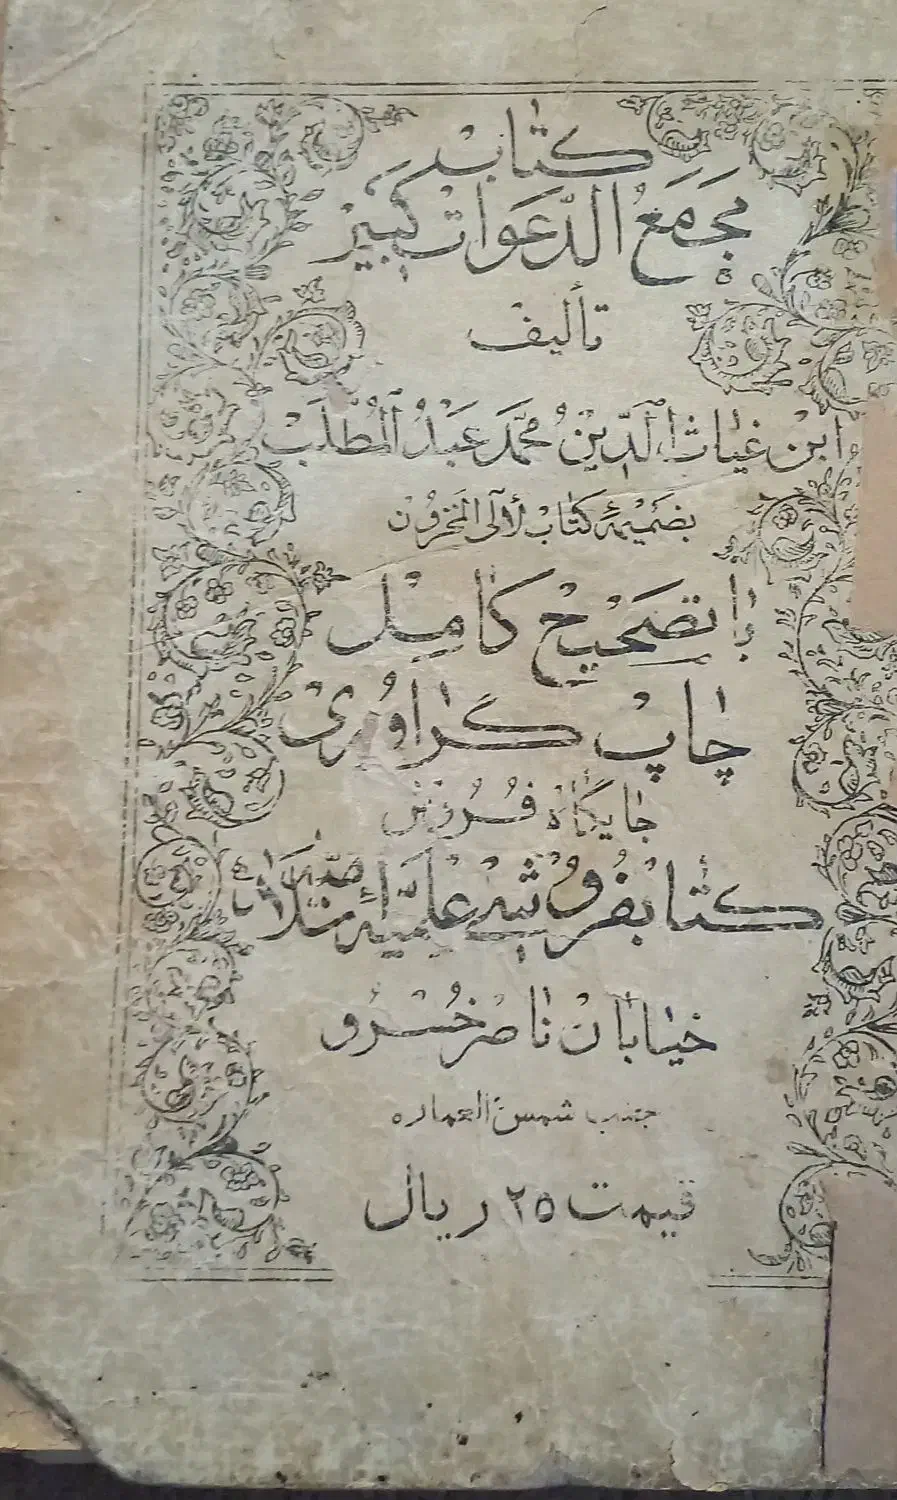 کتاب
مَجمَعُ الدَّعَوات کَبیر
تألیف
ابن غیاث الدّین مُحَمَّد عَبدُ المُطَّلَب
بضمیمهٔ کتاب لآلی المخزون
با تصحیح کامِل
چاپ گراوری
جایگاه فروش
کتابفروشی علمیّه اسلامیّه
خیابان ناصر خُسرو
جنب شمس العماره
قیمت ۲۵ ریال